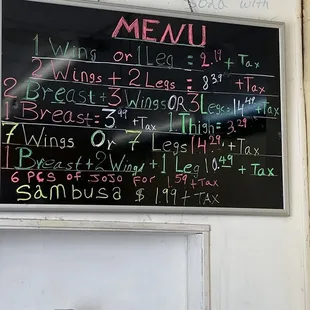 Soda with
MENU
1 Wing or 1 Leg = 2.19 + Tax
2 Wings + 2 Legs = 8.39 + Tax
2 Breast + 3 Wings OR 3 Legs = 14.49 + Tax
1 Breast = 3.99 + Tax 1 Thigh = 3.29
7 Wings Or 7 Legs 14.29 + Tax
1 Breast + 2 Wings + 1 Leg 10.49 + Tax
6 PCS OF JOJO FOR 1.59 + Tax
Sambusa $ 1.99 + TAX